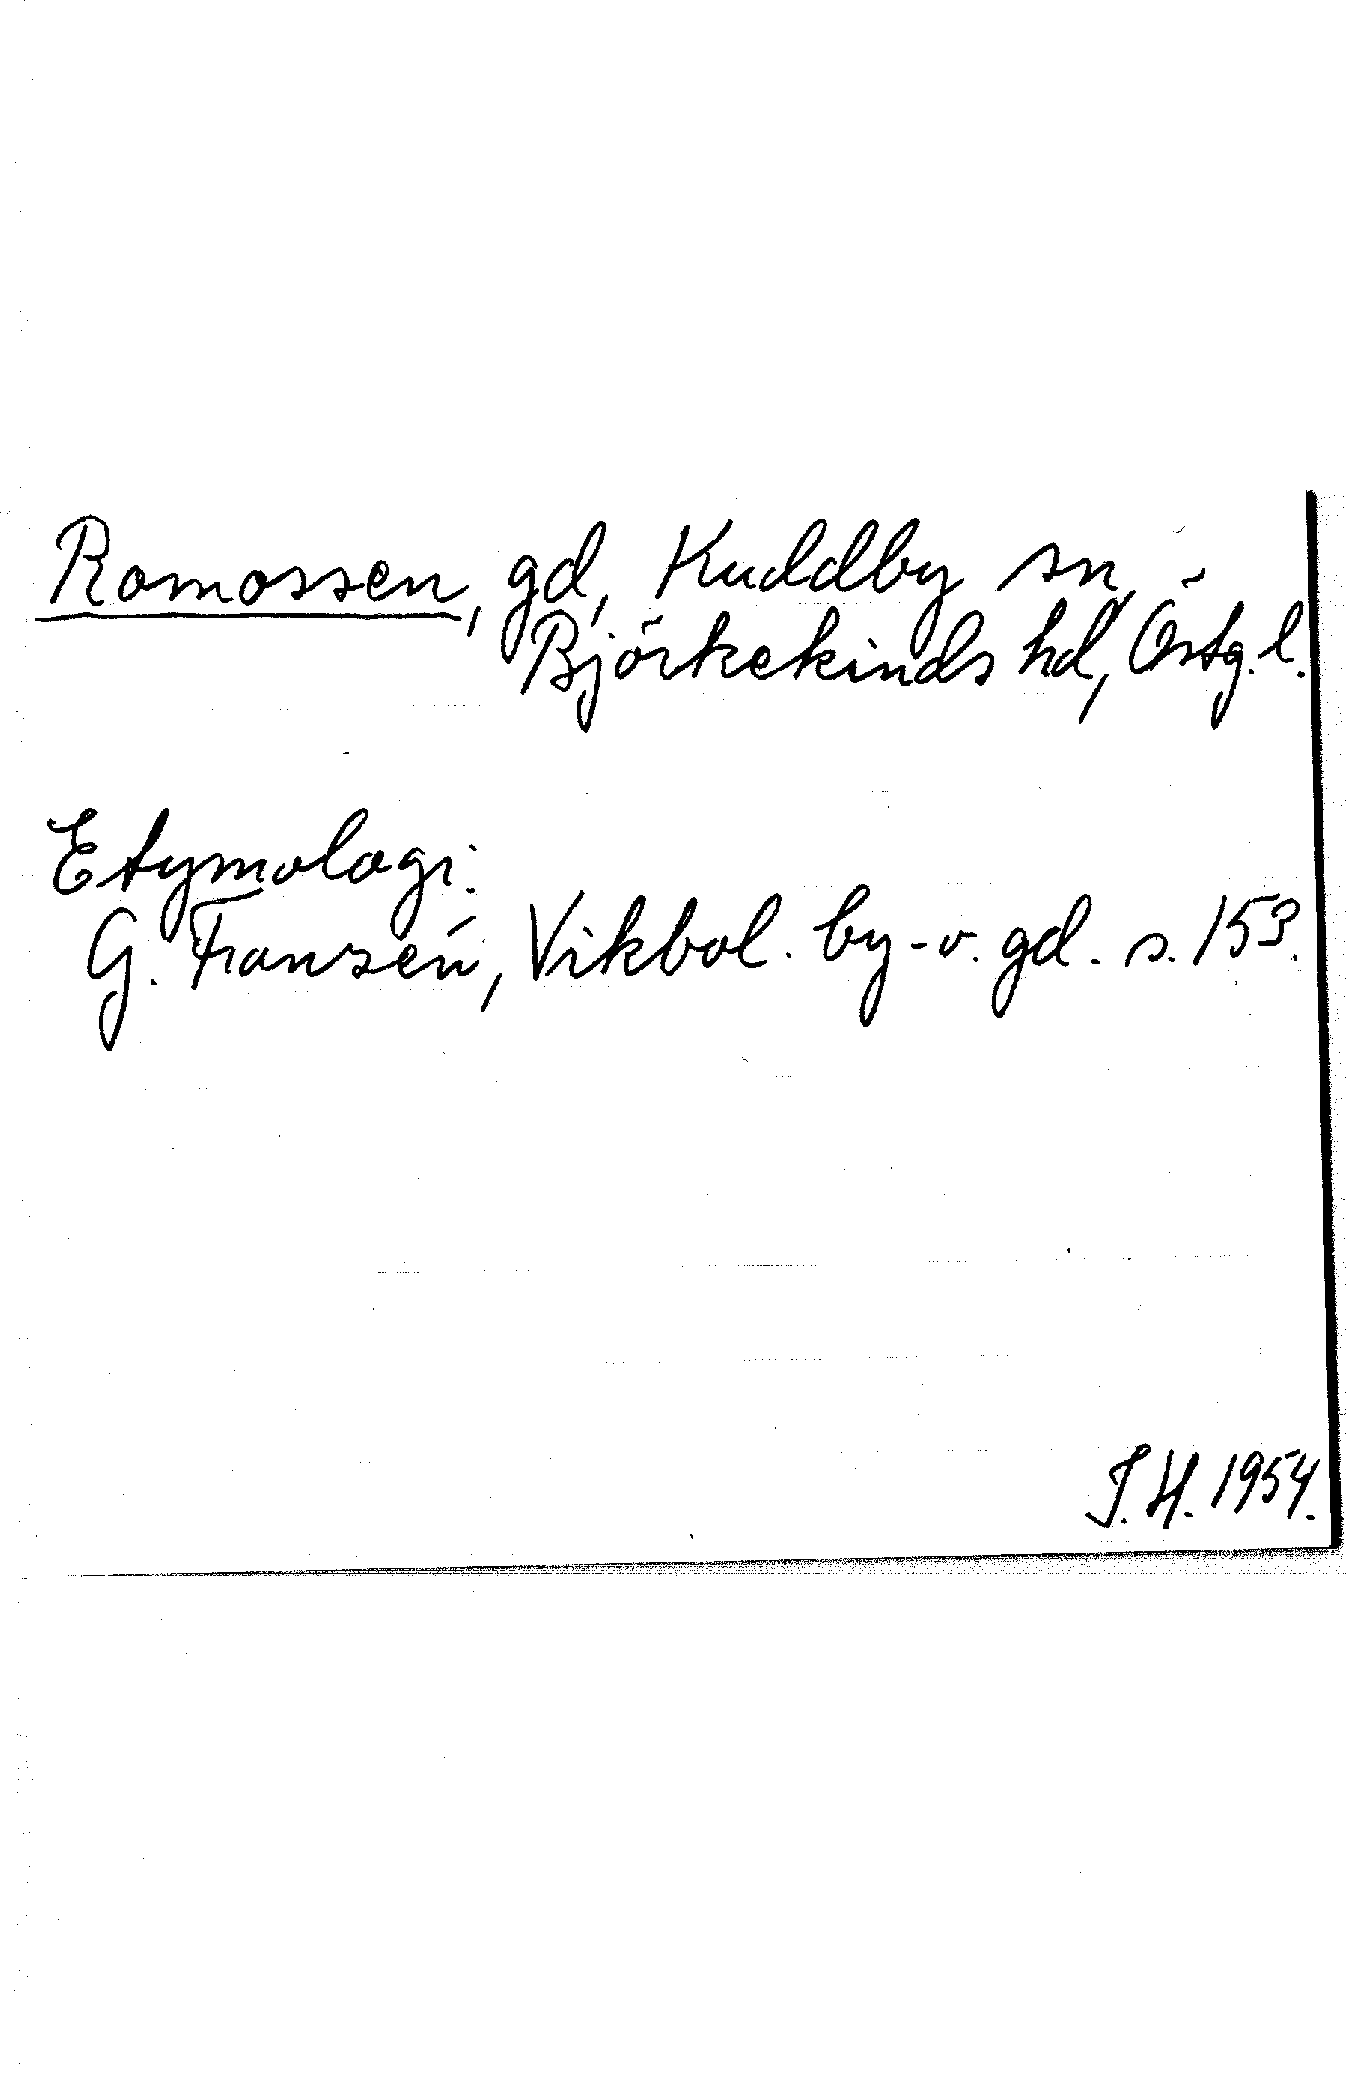 Romossen, gd, Kuddby sn,
Björkekinds hd, Östg. l.
Etymologi:
G. Franzén, Vikbol. by- o. gd. s. 153.
I. H. 1954.